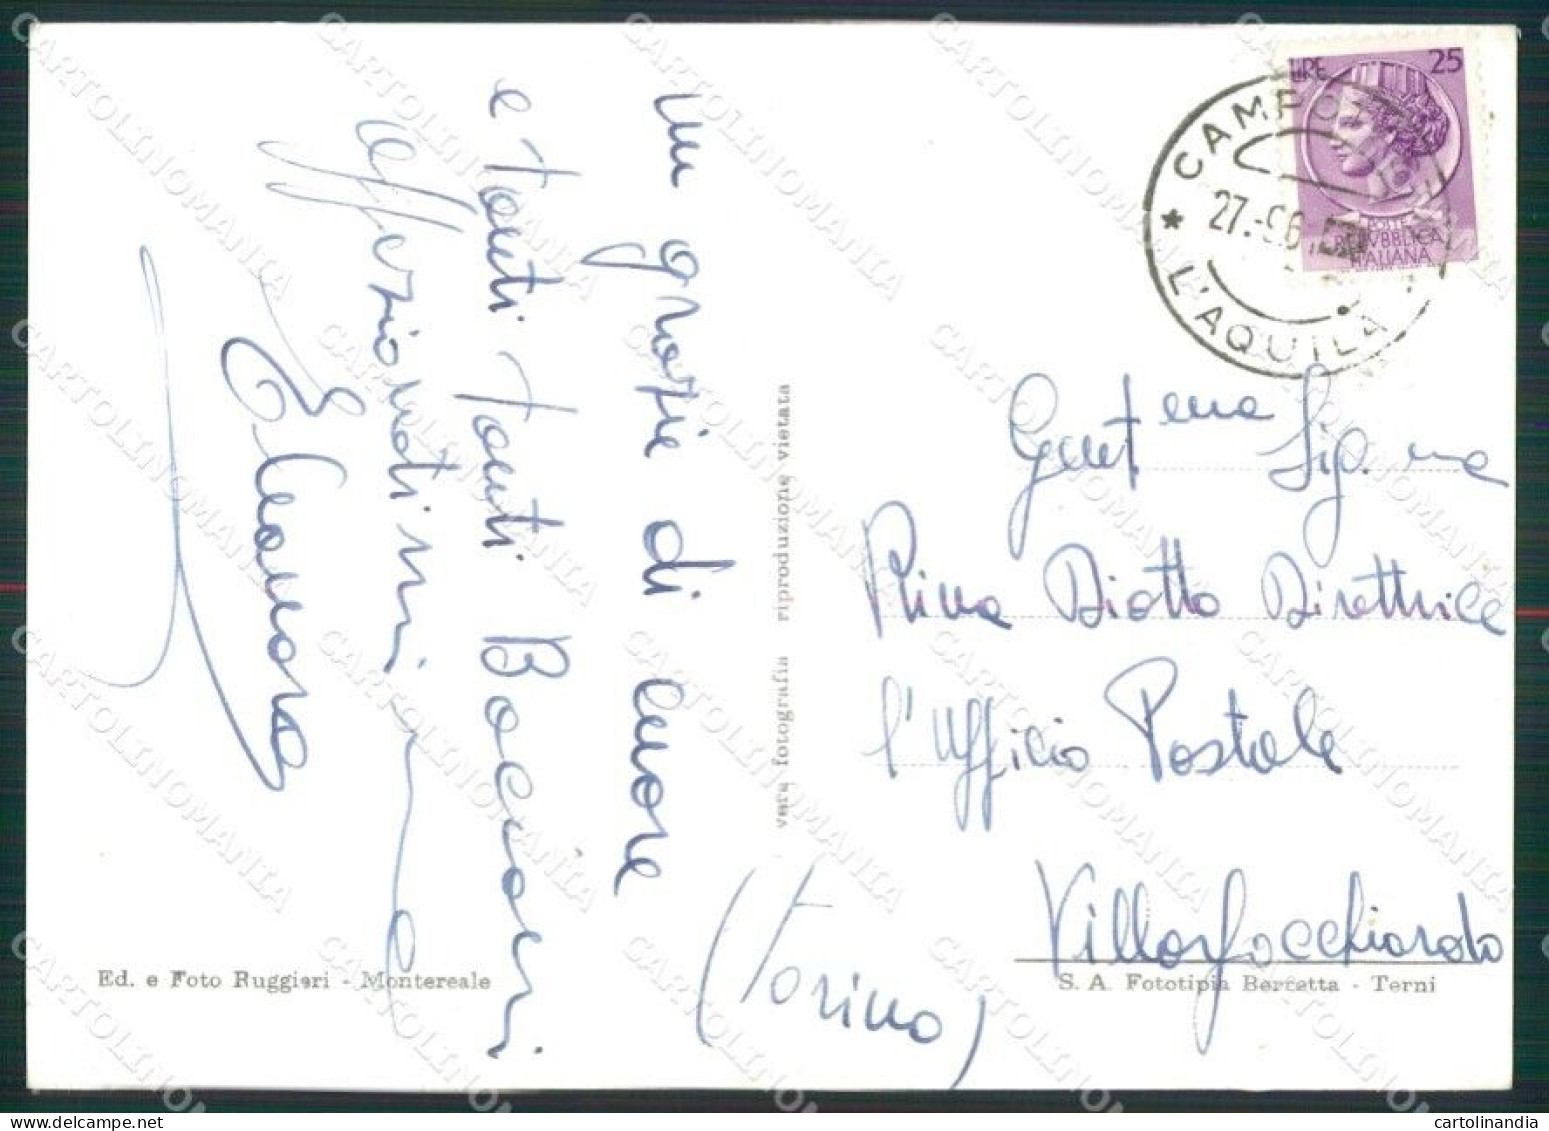 un grazie di cuore
e tanti tanti tanti Bacioni
affezionatissima
Eleonora
vera fotografia riproduzione vietata
Ed. e Foto Ruggieri - Montereale
LIRE 25
POSTE
REPUBBLICA
ITALIANA
CAMPO
27.-9 6
L'AQUILA
Gent.ema Sig.na
Rina Diotto Direttrice
l'Ufficio Postale
Villarfocchiardo
S. A. Fototipia Bercetta - Terni
(Torino)
CARTOLINOMANIA
cartolinandia